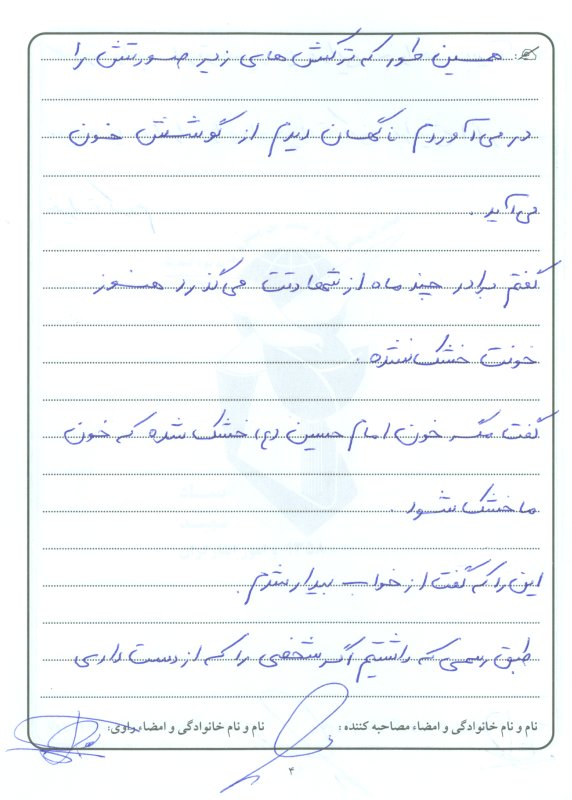 همین طور که ترکش های زیر صورتش را
در می آوردم ناگهان دیدم از گوشش خون
می آید .
گفتم برادر چند ماه از شهادتت می گذرد هنوز
خونت خشک نشده .
گفت مگر خون امام حسین (ع) خشک شده که خون
ما خشک شود .
این را که گفت از خواب بیدار شدم .
طبق رسمی که داشتیم اگر شخصی را که از دست دادی
نام و نام خانوادگی و امضاء مصاحبه کننده : نام و نام خانوادگی و امضاء راوی:
۴